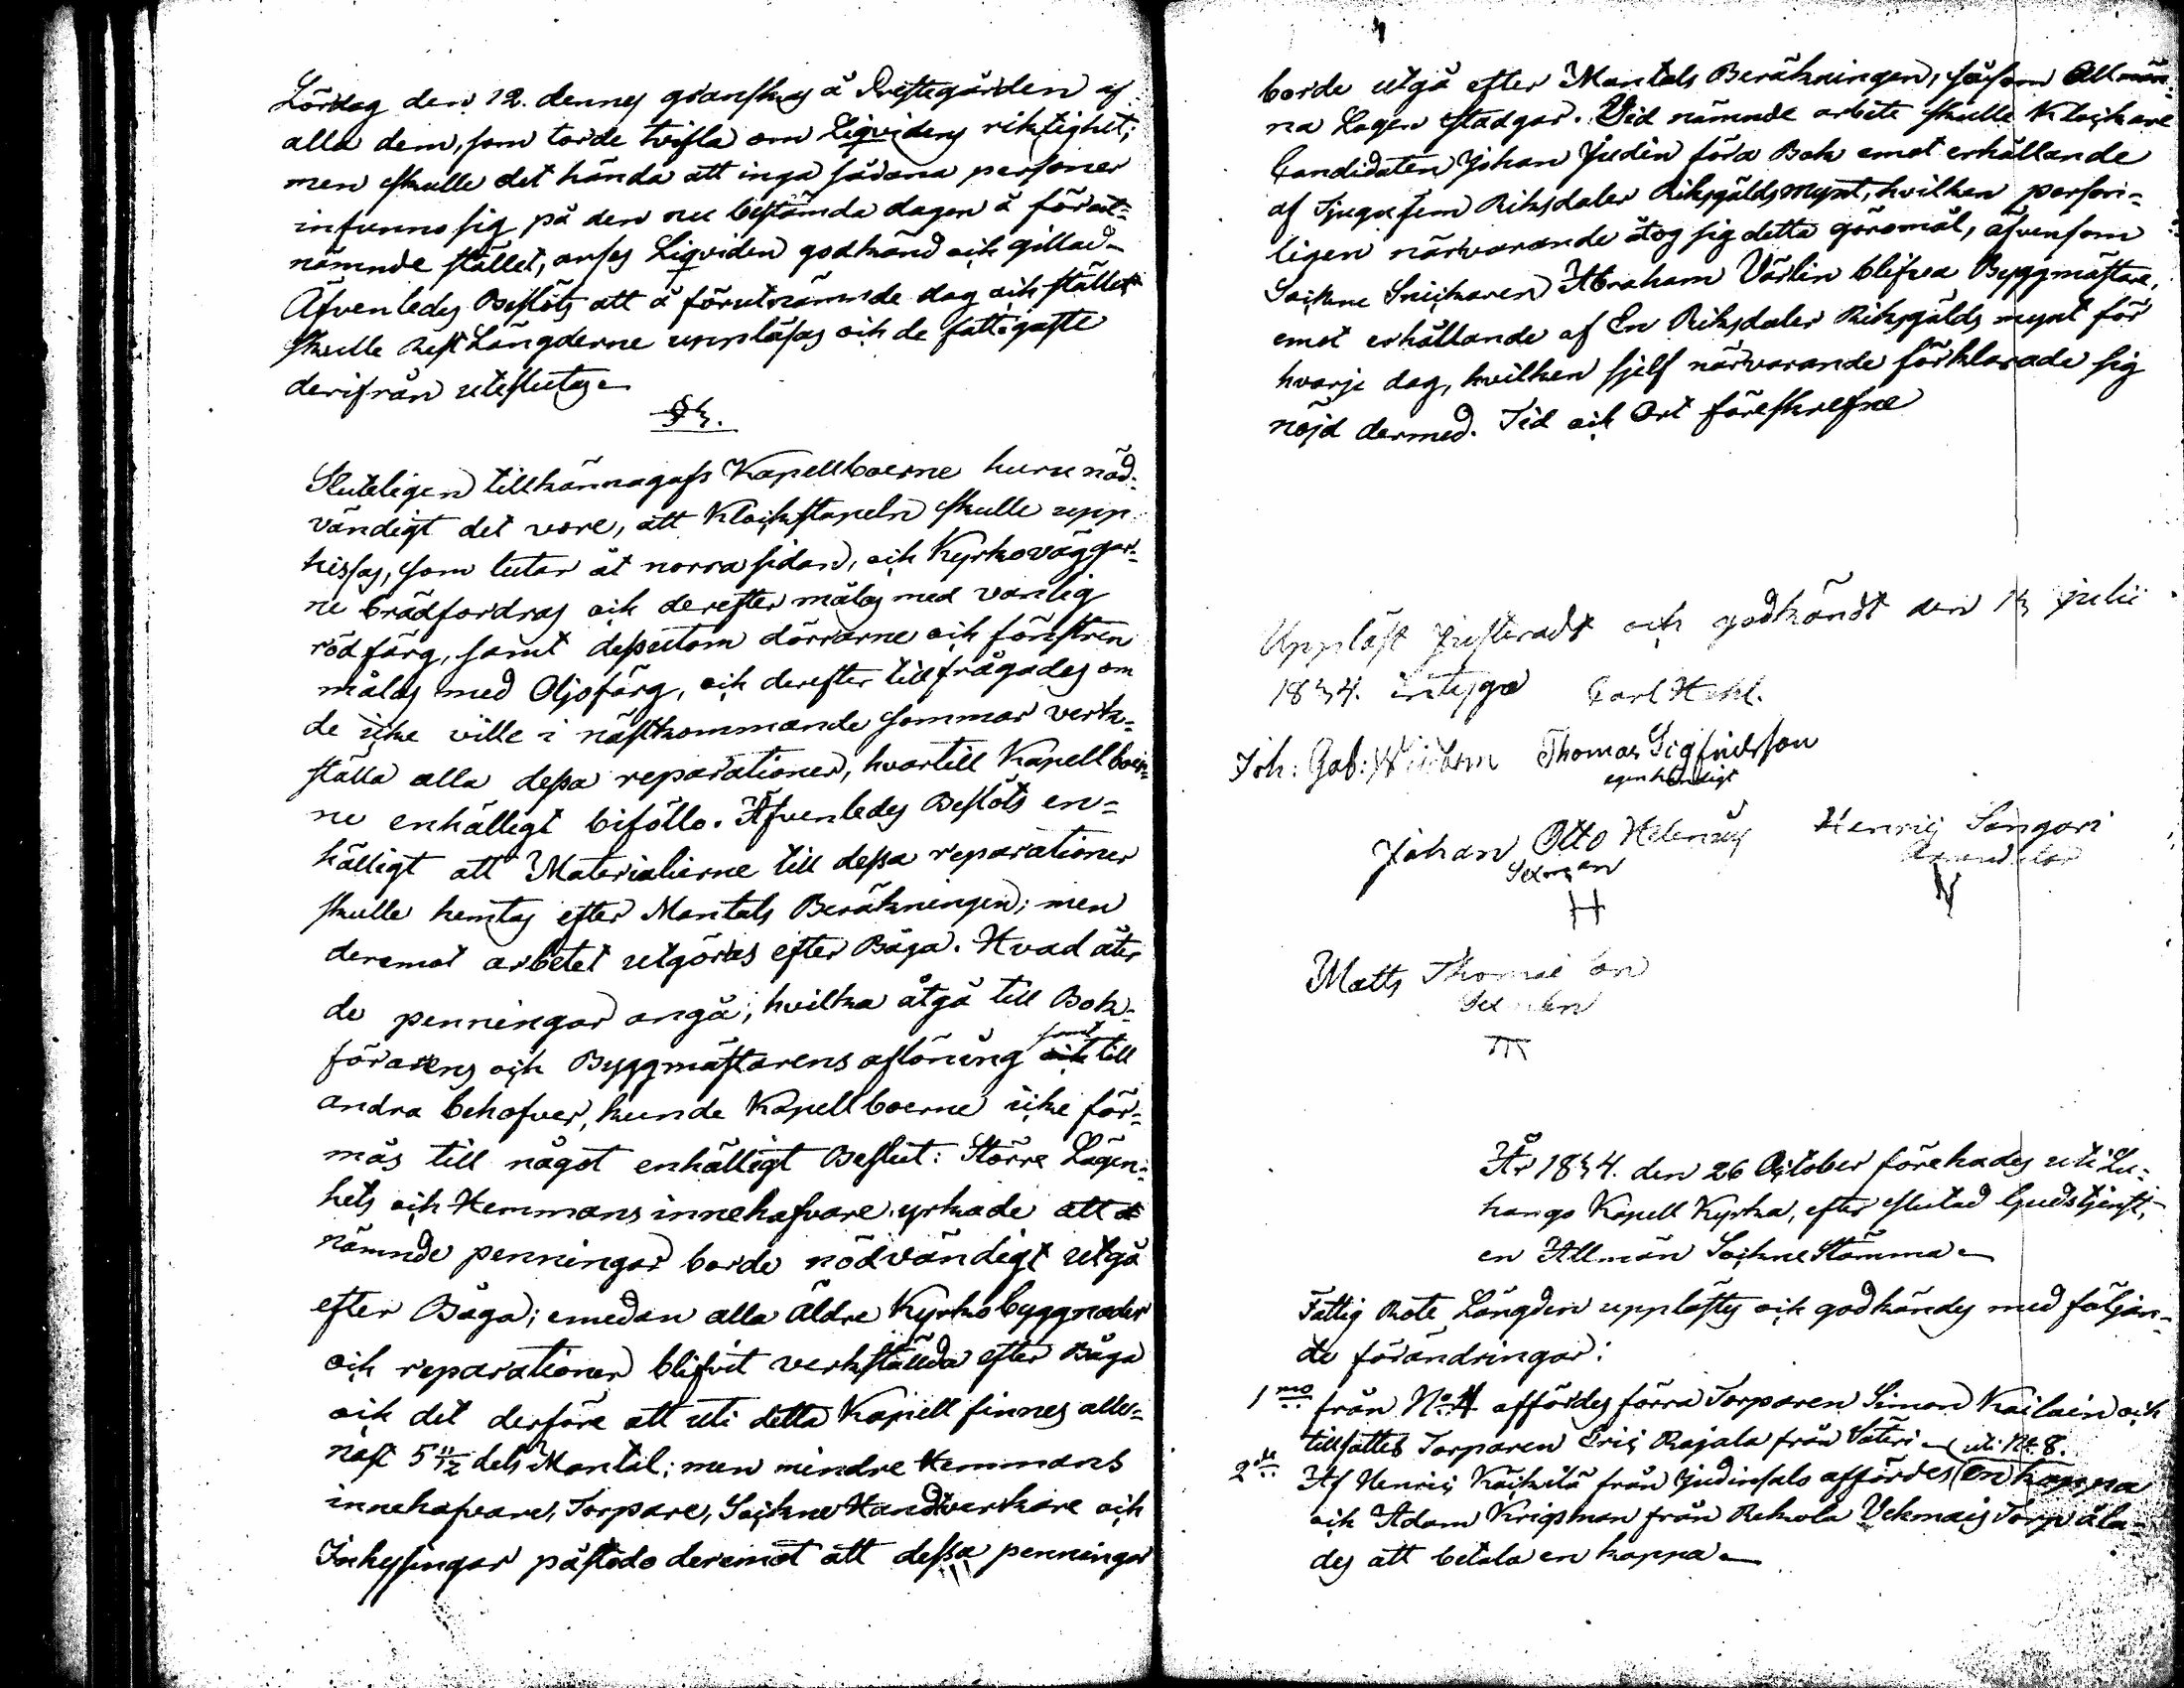 Lördag den 12. dennes granskas å Prestegården af
alla dem, som torde tvifla om Liqvidens riktighet;
men skulle det hända att inga sådana personer
infunno sig på den nu bestämda dagen å förut=
nämnde stället, anses Liqviden godkänd och gillad
Äfvenledes Beslöts att å förutnämnde dag och stället
skulle Rest Längderne uppläsas och de fattigaste
derifrån uteslutas
§ 3.
Sluteligen tillkännagafs Kapellboerne huru nöd=
vändigt det vore, att Klockstapeln skulle upp
hissas, som lutar åt norra sidan, och Kyrkoväggar=
ne brädfordras och derefter målas med vanlig
rödfärg, samt dessutom dörrarne och fönstren
målas med Oljofärg, och derefter tillfrågades om
de icke ville i nästkommande sommar verk=
ställa alla dessa reparationer, hvartill Kapellboer=
ne enhälligt biföllo. Äfvenledes Beslöts en=
hälligt att Materialierne till dessa reparationer
skulle hemtas efter Mantals Beräkningen; men
deremot arbetet utgöras efter Båga. Hvad åter
de penningar angå, hvilka åtgå till Bok=
förarens och Byggmästarens aflöning samt till
andra behofver, kunde Kapellboerne icke för=
mås till något enhälligt Beslut: Större Lägen=
hets och Hemmans innehafvare yrkade att
nämnde penningar borde nödvändigt utgå
efter Båga; emedan alla äldre Kyrkobyggnader
och reparationer blifvit verkställda efter Båga
och det derföre att uti detta Kapell finnes alle=
nast 5 11/12 dels Mantal; men mindre Hemmans
innehafvare, Torpare, Sockne Handtverkare och
Inhysingar påstodo deremot att dessa penningar
borde utgå efter Mantals Beräkningen, såsom Allmän=
na Lagen stadgar. Vid nämnde arbete skulle Klockare
Candidaten Johan Judin föra Bok emot erhållande
af Tjugufem Riksdaler Riksgälds mynt, hvilken person=
ligen närvarande åtog sig detta göromål, äfvensom
Sockne Snickaren Abraham Vårlin blifva Byggmästare,
emot erhållande af En Riksdaler Riksgälds mynt för
hvarje dag, hvilken sjelf närvarande förklarade sig
nöjd dermed. Tid och Ort föreskrefne
Uppläst justeradt och godkändt den 13 julii
1834. intyga Carl Hehl.
Joh: Gab: Thomas Sigfridsson
egenhändigt
Johan Otto Helenius Henric Sangari
Sexman
H N
Matts Thomasson
Sexman
År 1834. den 26 October förehades uti Lu=
hango Kapell Kyrka, efter slutad Gudstjenst,
en Allmän Sockne Stämma
Fattig Rote Längden upplästes och godkändes med följan=
de förändringar:
1mo från No 4 affördes förra Torparen Simon Kailain och
tillsattes Torparen Eric Rajala från Säteri uti No 8.
2do Af Henric Käckelä från Judinsalo affördes en kappa
och Adam Krigsman från Rekola Vekmais Torp ålа=
des att betala en kappa